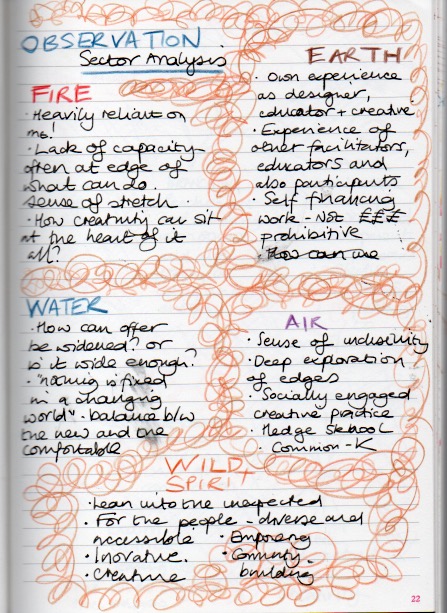 OBSERVATION
Sector Analysis
FIRE
· Heavily reliant on
me!
· Lack of capacity
often at edge of
what can do.
Sense of stretch.
· How creativity can sit
at the heart of it
all?
EARTH
· Own experience
as designer,
educator + creative
· Experience of
other facilitators,
educators and
also participants
· Self financing
work - Not £££
prohibitive
WATER
· How can offer
be widened? or
is it wide enough?
· "nothing is fixed
in a changing
world" · balance b/w
the new and the
comfortable
AIR
· Sense of inclusivity
· Deep exploration
of edges
· Socially engaged
creative practice
· Hedge School
· Common-K
WILD
SPIRIT
· Lean into the unexpected
· For the people - diverse and
accessible
· Inovative.
· Creature
· Community-
building
22